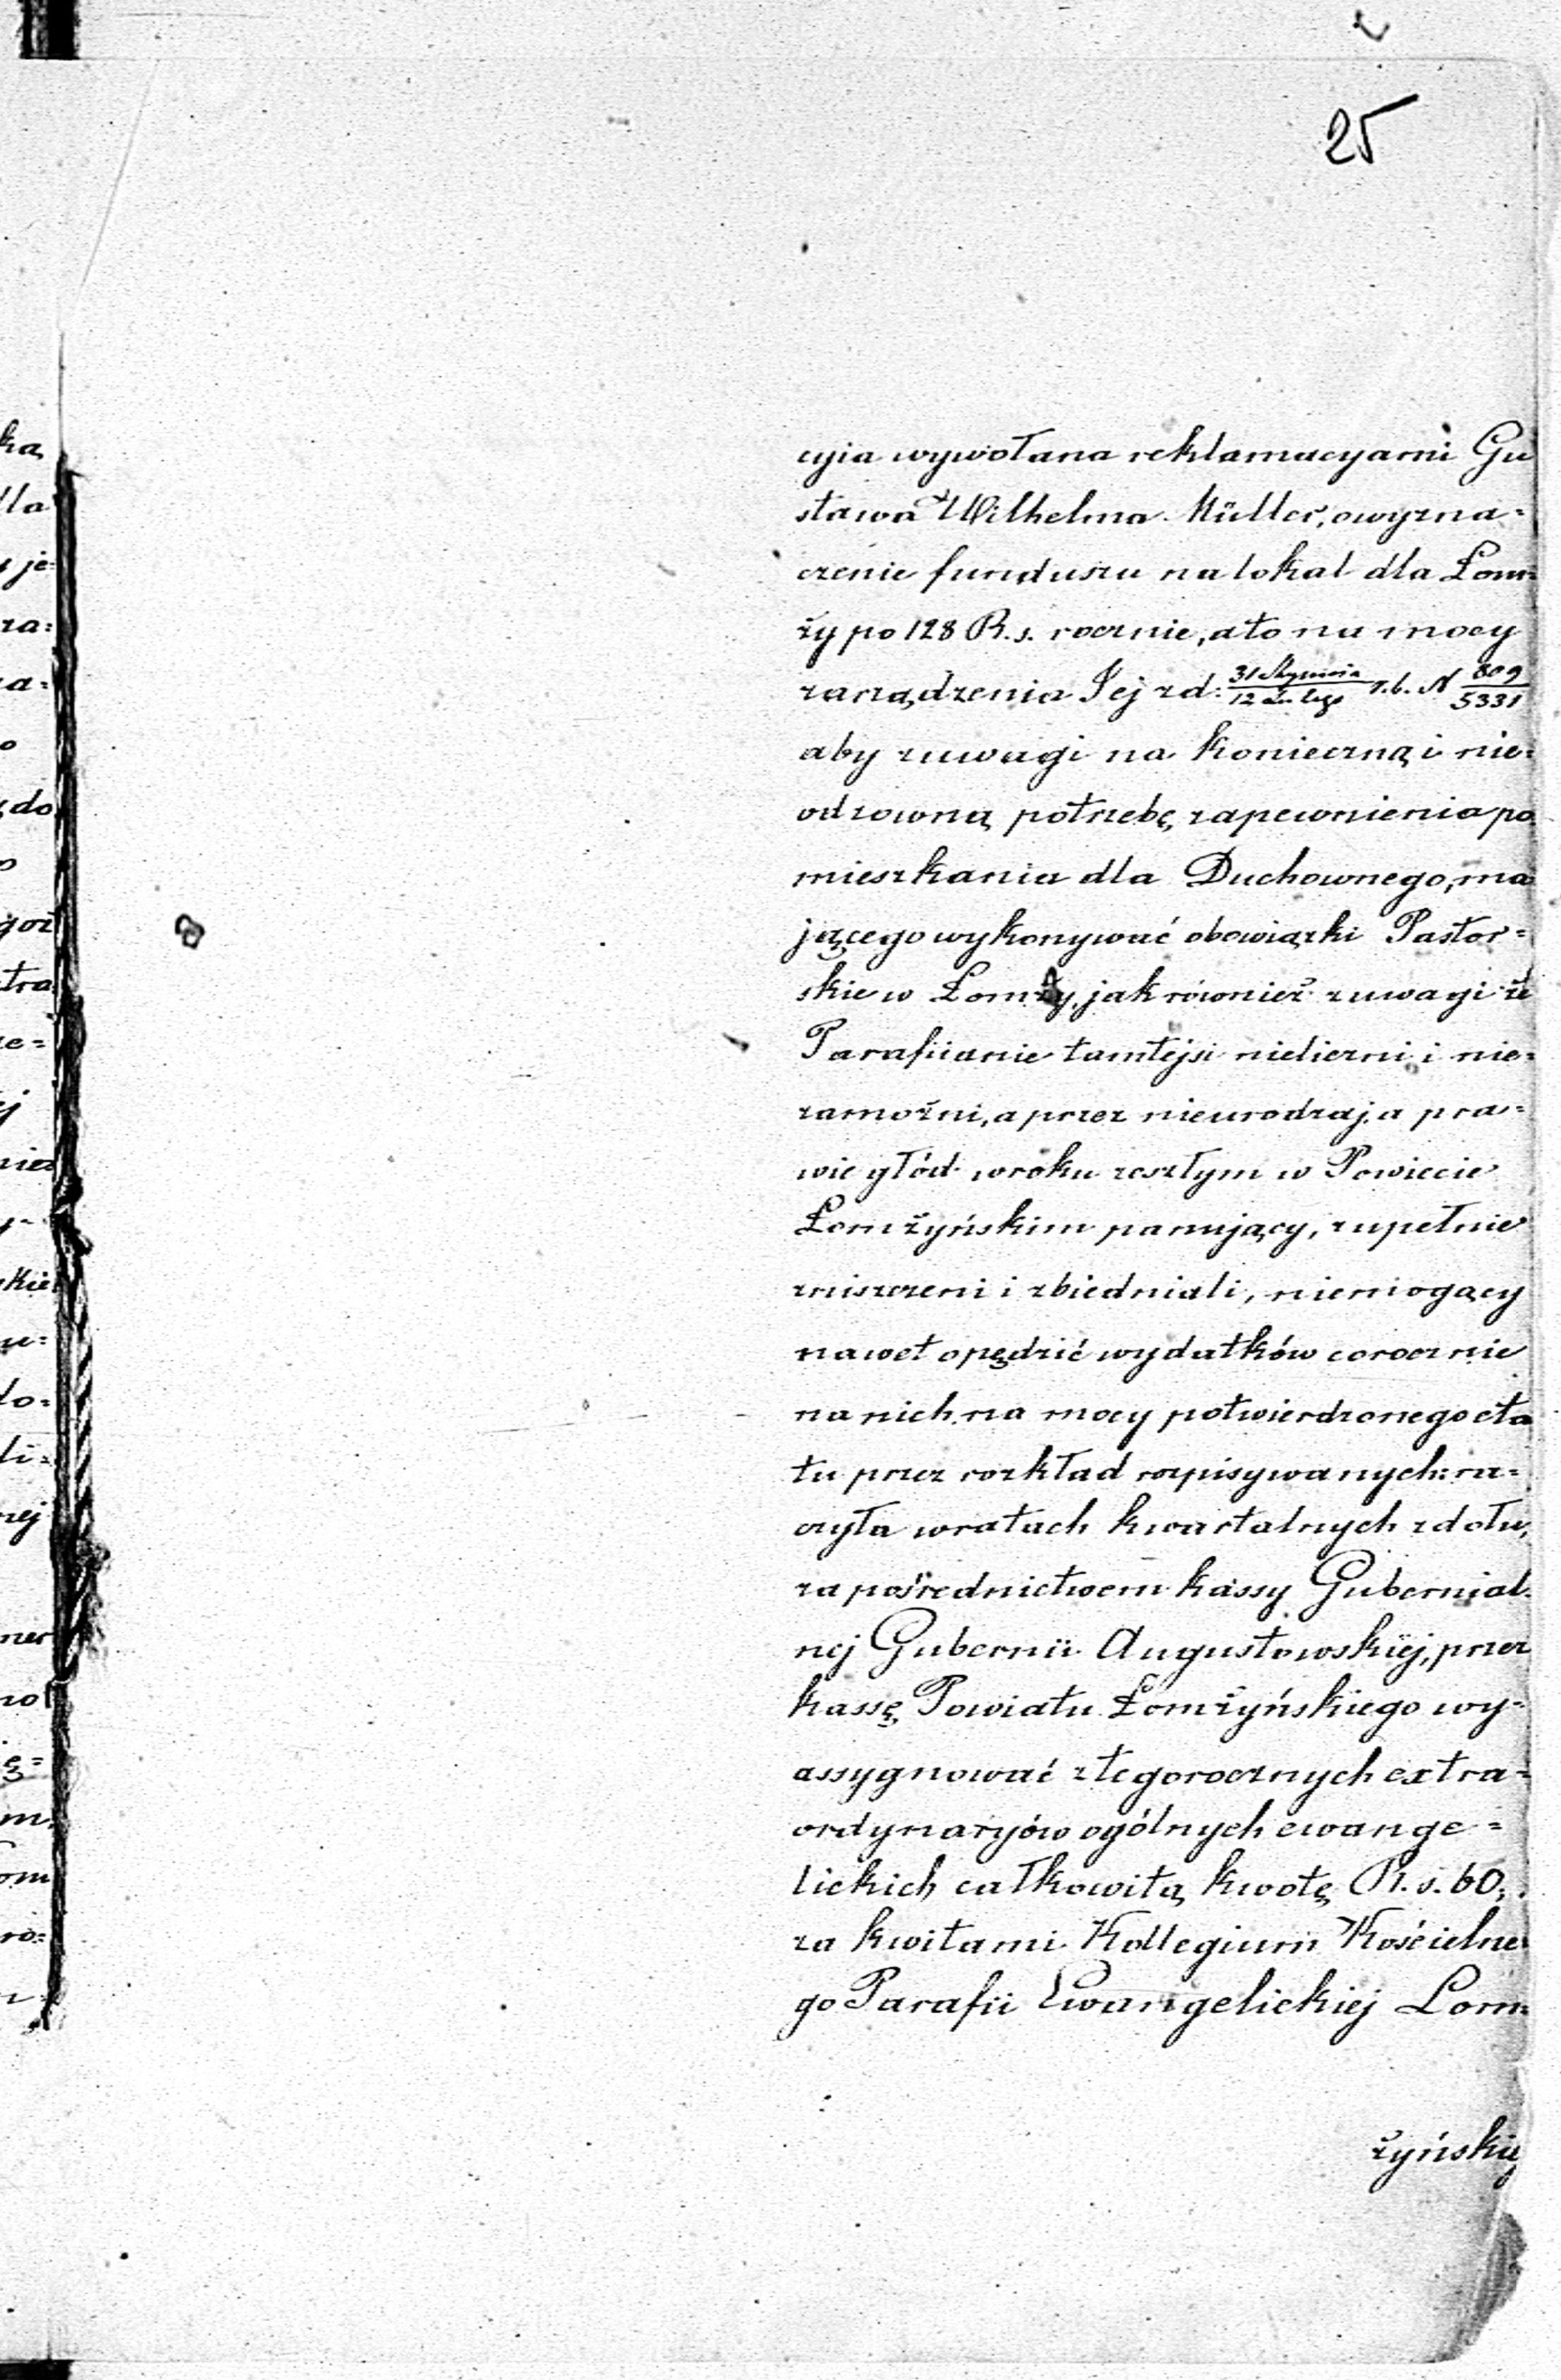 25
cyia wywołana reklamacyami Gu
stawa Wilhelma Müller, o wyzna=
czenie funduszu na lokal dla Łom=
ży po 128 R. s. rocznie, a to na mocy
zarządzenia Jej z d: 31 Stycznia / 12 Lutego r. b. N 809 / 5331
aby z uwagi na konieczną i nie=
odzowną potrzebę zapewnienia po
mieszkania dla Duchownego, ma
jącego wykonywać obowiązki Pastor=
skie w Łomży, jak również z uwagi że
Parafiianie tamtejsi nieliczni i nie=
zamożni, a przez nieurodzaj, a pra=
wie głód w roku zeszłym w Powiecie
Łomżyńskim panujący, zupełnie
zniszczeni i zbiedniali, niemogący
nawet opędzić wydatków corocznie
na nich na mocy potwierdzonego eta
tu przez rozkład rozpisywanych: ra=
czyła w ratach kwartalnych z dołu,
za pośrednictwem kassy Gubernial
nej Gubernii Augustowskiej, przez
kassę Powiatu Łomżyńskiego wy=
assygnować z tegorocznych extra=
ordynaryów ogólnych ewange=
lickich całkowitą kwotę R. s. 60,
za kwitami Kollegium Kościelne
go Parafii Ewangelickiej Łom=
żyńskiej
ka
dla
je=
za=
a=
o
do
o
goż
tra
ze=
ej
nież
y-
skie
u=
do=
li=
nej
ner
zo
ię=
m
om
ro=